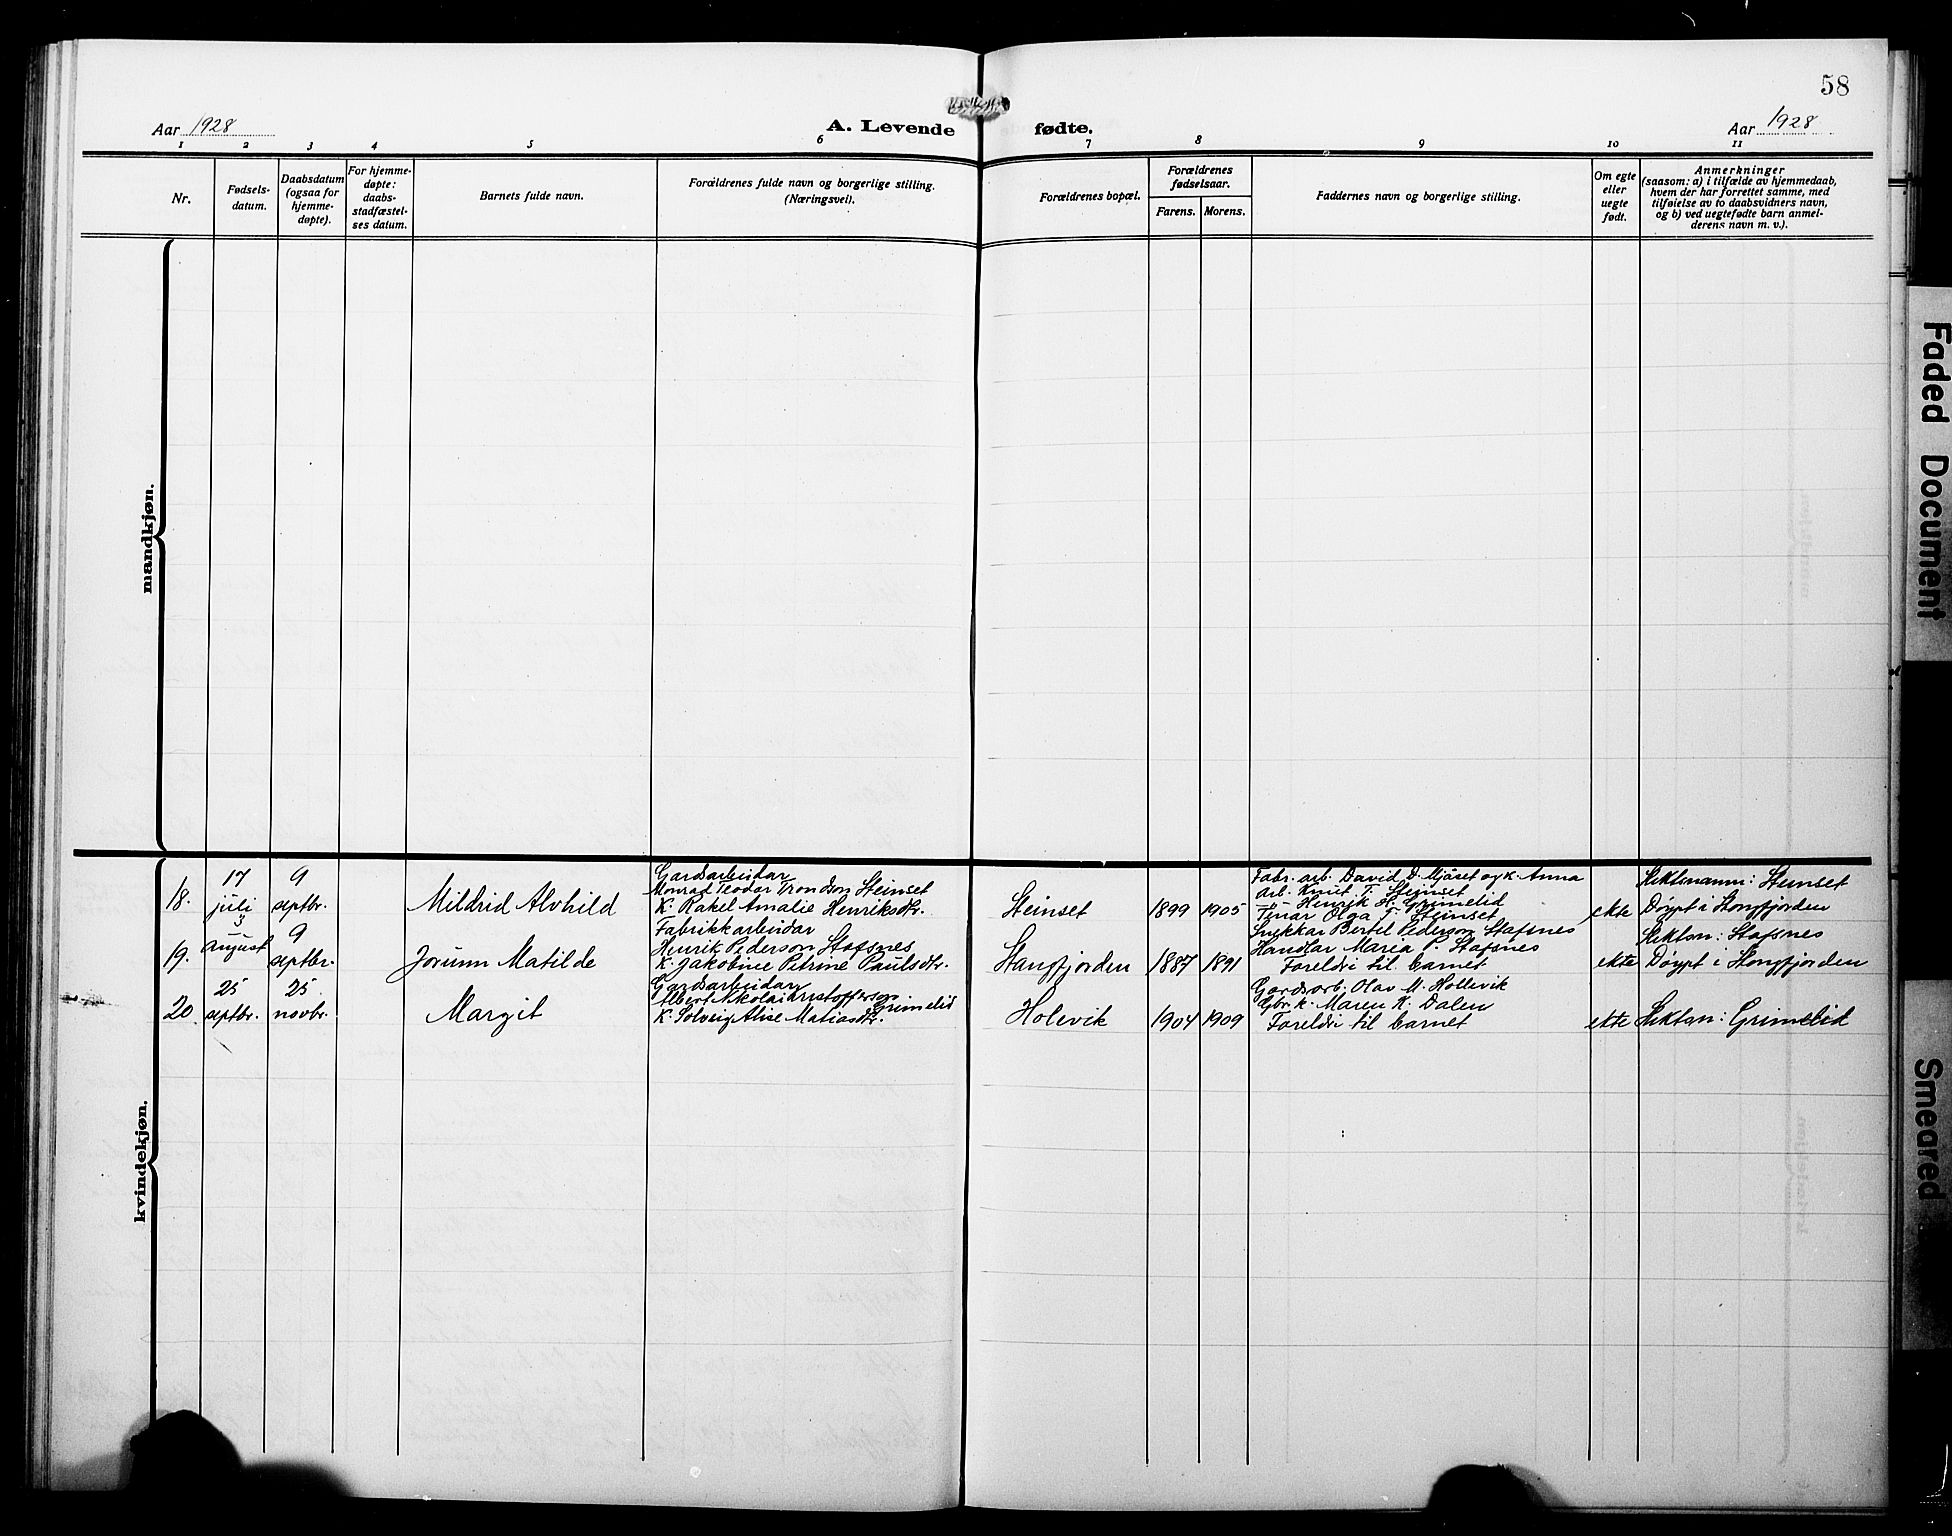 58
Aar 1928
A. Levende fødte.
Aar 1928
1 2 3 4 5 6 7 8 9 10 11
Nr.
Fødsels-
datum.
Daabsdatum
(ogsaa for
hjemme-
døpte).
For hjemme-
døpte:
daabs-
stadfæstel-
ses datum.
Barnets fulde navn.
Forældrenes fulde navn og borgerlige stilling.
(Næringsvei).
Forældrenes bopæl.
Forældrenes
fødselsaar.
Farens. Morens.
Faddernes navn og borgerlige stilling.
Om egte
eller
uegte
født.
Anmerkninger
(saasom: a) i tilfælde av hjemmedaab,
hvem der har forrettet samme, med
tilføielse av to daabsvidners navn,
og b) ved uegtefødte barn anmel-
derens navn m. v.).
mandkjøn.
kvindekjøn.
18.
17
juli
9
septbr.
Mildrid Alvhild
Gardsarbeidar
Monrad Teodor Trondson Steinset
K. Rakel Amalie Henriksdtr.
Steinset
1899 1905
Fabr. arb. David D. Mjåset og k. Anna
Arb. Knut T. Steinset
— " — Henrik H. Grimelid
Tenar Olga T. Steinset
ekte
Slektsnamn: Steinset
Døypt i Stongfjorden
19.
3
August
9
septbr.
Jorunn Matilde
Fabrikkarbeidar
Henrik Pederson Stafsnes
K. Jakobine Petrine Paulsdtr.
Stangfjorden
1887 1891
Snikkar Bertel Pederson Stafsnes
Handlar Maria P. Stafsnes
Foreldri til barnet
ekte
Slektsn: Stafsnes
Døypt i Stongfjorden
20
25
septbr.
25
novbr.
Margit
Gardsarbeidar
Albert Nikolai Kristofferson
Grimelid
K. Solveig Alise Matiasdtr.
Holevik
1904 1909
Gardsarb. Olav M. Hollevik
Gbr. k. Maren K. Dalen
Foreldri til barnet
ekte
Slektsn: Grimelid
Faded Document
Smeared